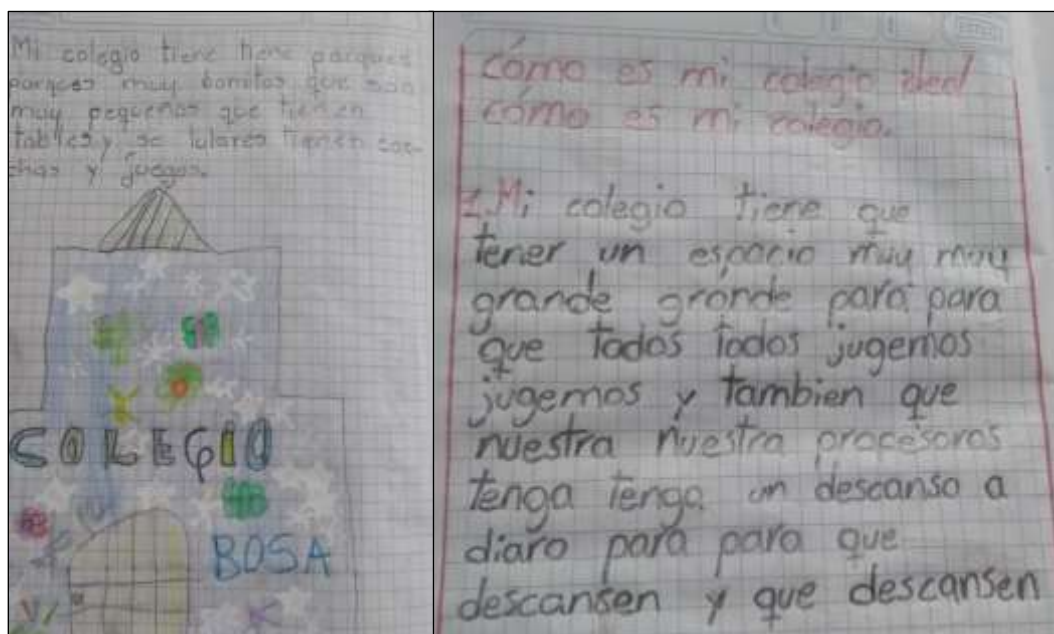 Mi colegio tiene tiene parques
parqces muy bomitos que son
muy pequeños que tienen
tables y se lulares tienen can-
chas y juegos.
COLEGIO
BOSA
cómo es mi colegio ideal
cómo es mi colegio.
1. Mi colegio tiene que
tener un espacio muy muy
grande grande para para
que todos todos jugemos
jugemos y tambien que
nuestra nuestra procesoras
tenga tenga un descanso a
diaro para para que
descansen y que descansen